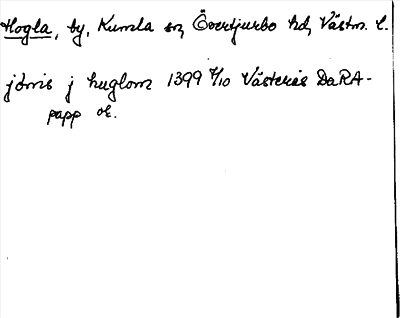 Hogla, by, Kumla sn, Övertjurbo hd, Västm. l.
jönis j huglom 1399 8/10 Västerås DaRA-
papp or.